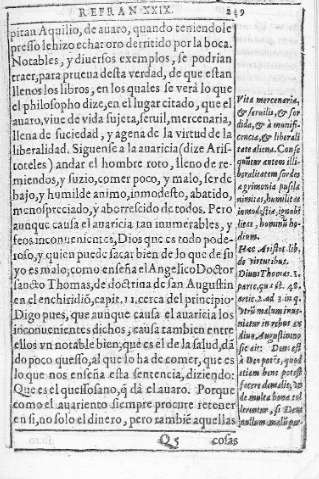 REFRAN XXIX. 249
pitan Aquilio, de auaro, quando teniendole
presso le hizo echar oro derritido por la boca.
Notables, y diuersos exemplos, se podrian
traer, para prueua desta verdad, de que estan
llenos los libros, en los quales se verá lo que
el philosopho dize, en el lugar citado, que el
auaro, viue de vida sujeta, seruil, mercenaria,
llena de suciedad, y agena de la virtud de la
liberalidad. Siguense a la auaricia (dize Aris-
toteles) andar el hombre roto, lleno de re-
miendos, y suzio, comer poco, y malo, ser de
bajo, y humilde animo, inmodesto, abatido,
menospreciado, y aborrescido de todos. Pero
aunque causa el auaricia tan inumerables, y
feos inconuenientes, Dios que es todo pode-
roso, y quien puede sacar bien de lo que de su
yo es malo, como enseña el Angelico Doctor
sancto Thomas, de doctrina de san Augustin
en el enchiridiõ, capit. 11. cerca del principio
Digo pues, que aunque causa el auaricia los
inconuenientes dichos, causa tambien entre
ellos vn notable bien, que es el de la salud, dã
do poco quesso, al que lo ha de comer, que es
lo que nos enseña esta sentencia, diziendo:
Que es el quesso sano, q̃ dá el auaro. Porque
como el auariento siempre procure retener
en si, no solo el dinero, pero tambiẽ aquellas
Q 5 cosas
Vita mercenaria,
& seruilis, & sor
dida, & à munifi-
cencia, & liberali
tate aliena. Con se
quũtur autem illi-
beralitatem sordes
acrimonia pusila
nimitas, humilitas
inmodestia, ignobi
litas, hominũ ho-
dium.
Hæc Aristot. lib.
de virtutibus.
Diuus Thomas. 1.
parte, quæst. 48.
artic. 2. ad 3. in q̃